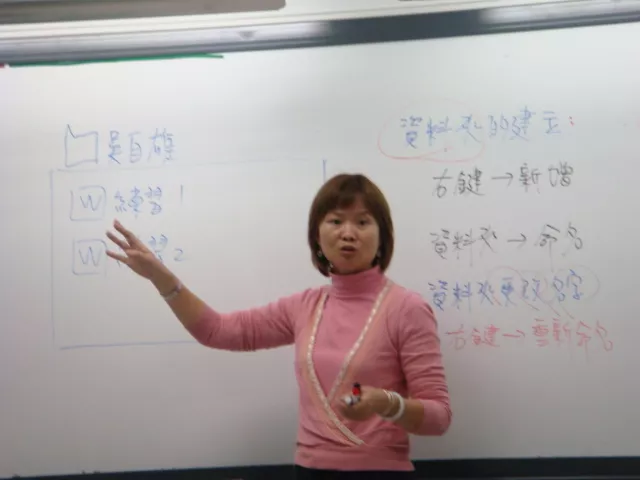 吳自雄
W 練習 1
W 習 2
資料夾的建立：
右鍵→新增
資料夾→命名
資料夾更改名字
右鍵→重新命名